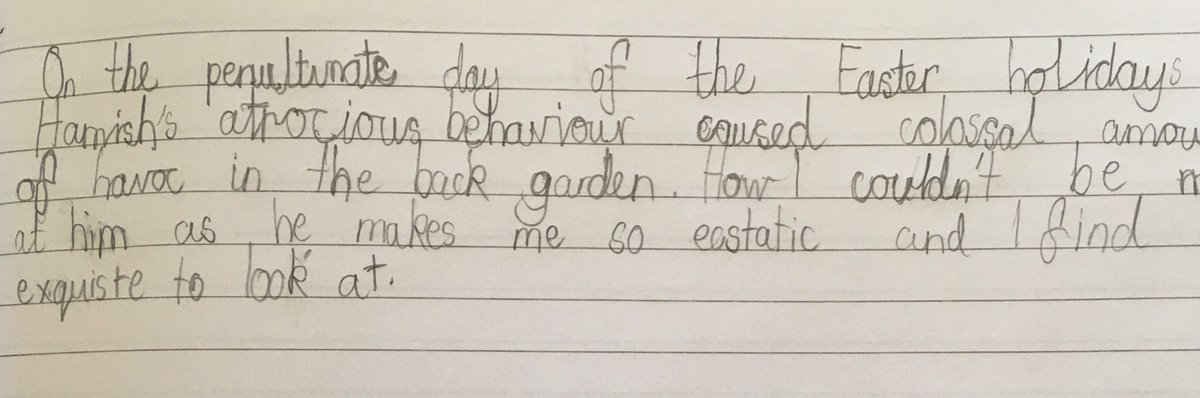 On the penultunate day of the Easter holidays
Hamish's atrocious behaviour caused colossal amou
of havoc in the back garden. How I couldn't be
at him as he makes me so ecstatic and I find
exquiste to look at.